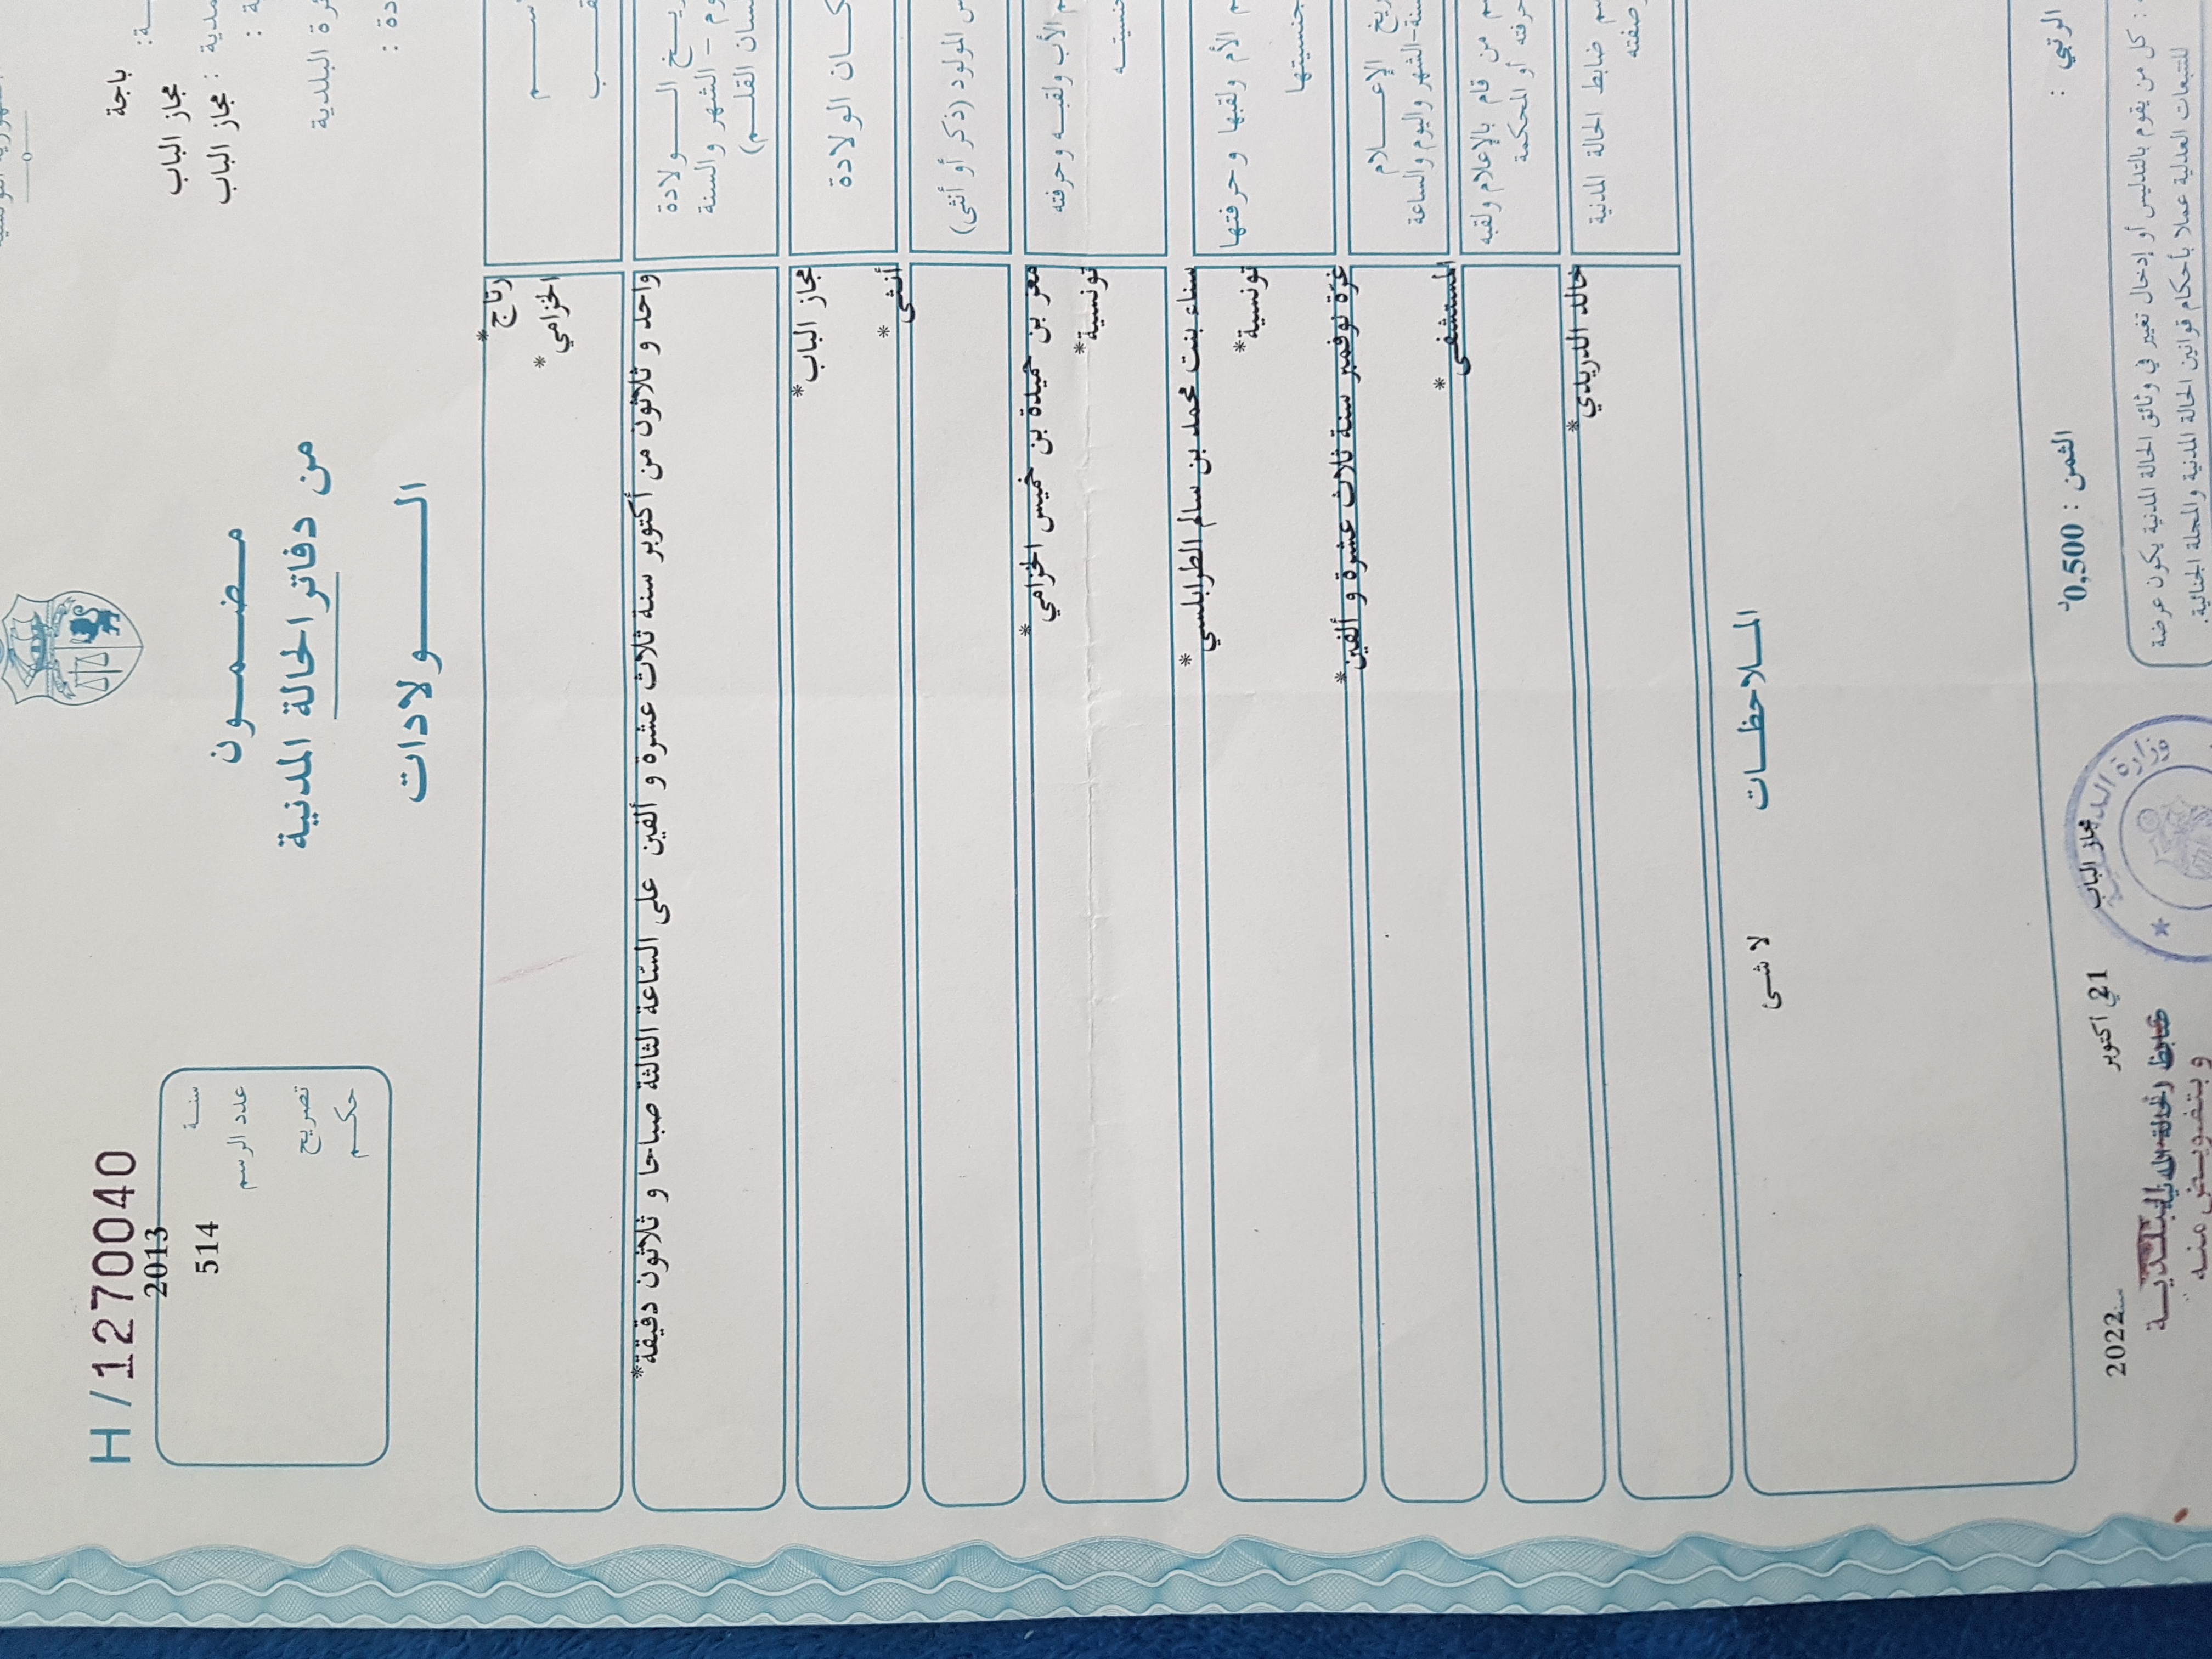 H/1270040
باجة
مجاز الباب
مجاز الباب
سنة 2013
عدد الرسم 514
تصريح
حكم
مضمون
من دفاتر الحالة المدنية
الولادات
رتاج*
الخزامي*
واحد و ثلاثون من أكتوبر سنة ثلاث عشرة و ألفين على السّاعة الثالثة صباحا و ثلاثون دقيقة*
كان الولادة
مجاز الباب*
المولود (ذكر أو أنثى)
أنثى*
الأب ولقبه وحرفته
معز بن حميدة بن خميس الخزامي*
تونسية*
الأم ولقبها وحرفتها
جنسيتها
سناء بنت محمد بن سالم الطرابلسي*
تونسية*
الإعلام
والشهر واليوم والساعة
غرّة نوفمبر سنة ثلاث عشرة و ألفين*
من قام بالإعلام ولقبه
حرفته أو المحكمة
المستشفى*
ضابط الحالة المدنية
صفته
خالد الدريدي*
الملاحظات
لا شئ
الثمن : 0,500د
مجاز الباب في 21 أكتوبر سنة 2022
: كل من يقوم بالتدليس أو إدخال تغيير في وثائق الحالة المدنية يكون عرضة
للتتبعات العدلية عملا بأحكام قوانين الحالة المدنية والمجلة الجنائية.
ضابط الحالة المدنية
وبتفويض منه